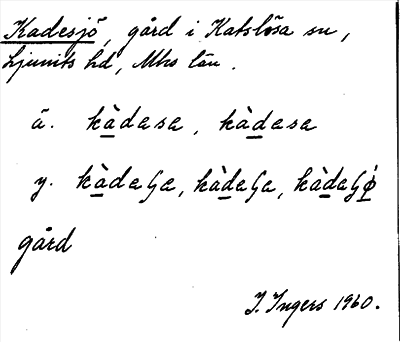 Kadesjö, gård i Katslösa sn,
Ljunits hd, Mhs län.
ä. kàdasa, kàdasa
y. kàdaʃa, kàdaʃa, kàdaʃø̀
gård
I. Ingers 1960.